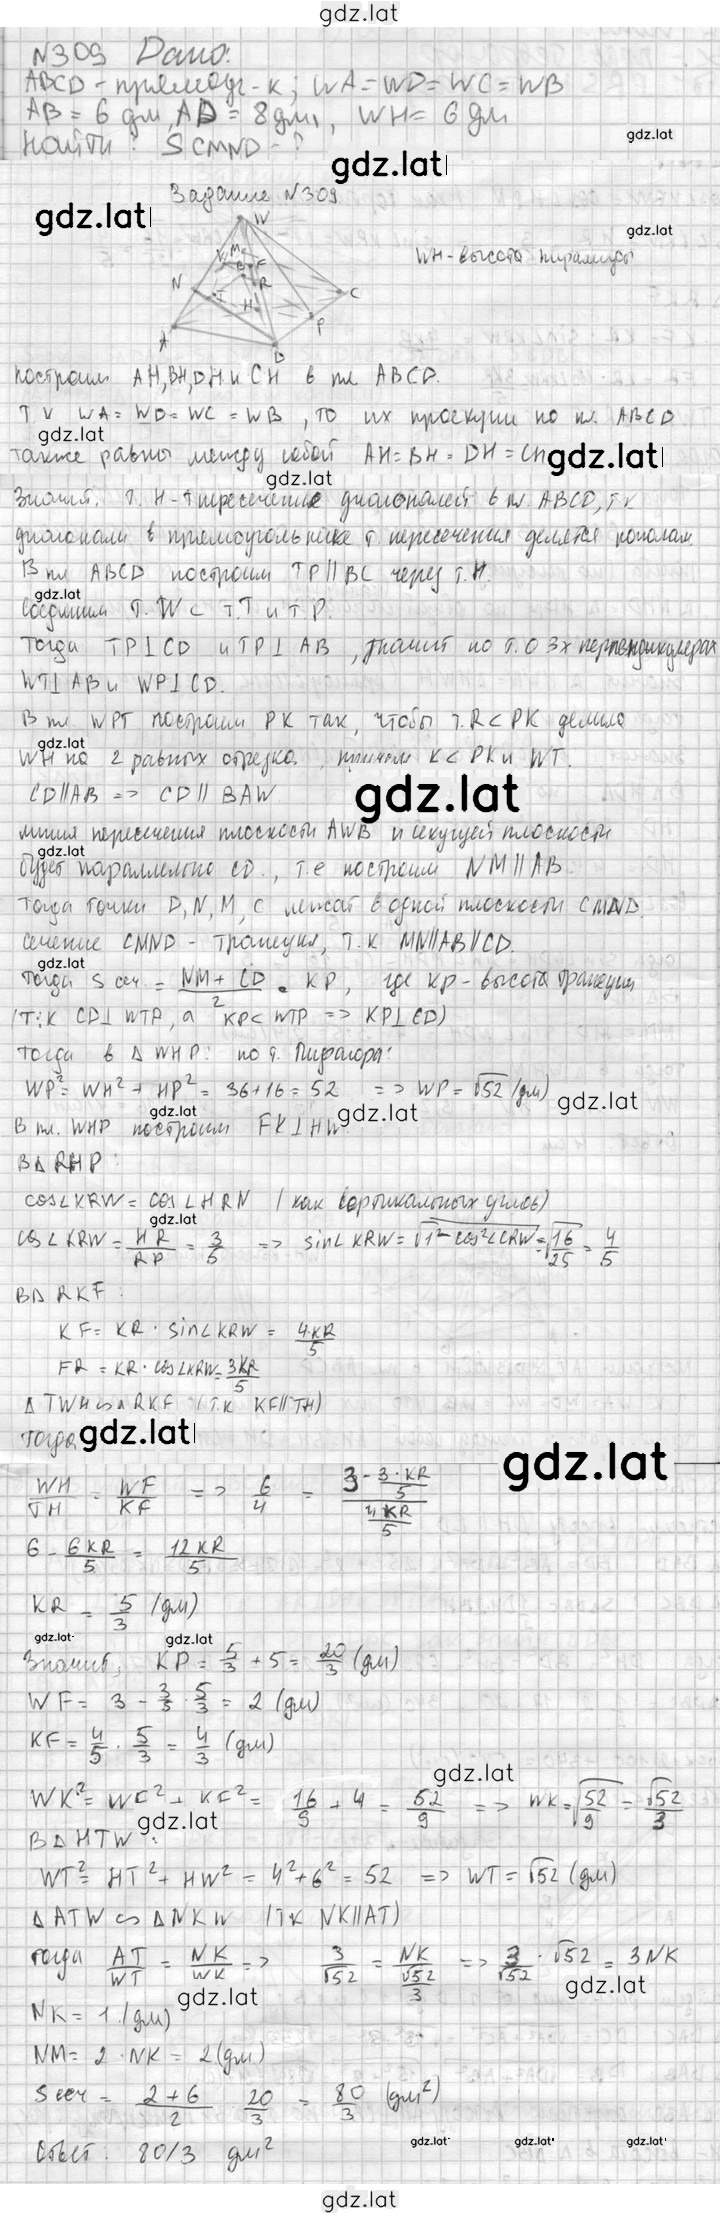 gdz.lat
N309 Дано:
ABCD - прямоуг-к; WA=WD=WC=WB
AB = 6 дм, AD = 8 дм, WH = 6 дм
Найти: SCMND - ?
gdz.lat
gdz.lat
Задание N309
gdz.lat
gdz.lat
W
M
F
R
N
T
H
C
P
A
D
WH - высота пирамиды
построим AH, BH, DH и CH в пл ABCD.
Т.к WA = WD = WC = WB, то их проекции по пл. ABCD
gdz.lat
также равны между собой AH = BH = DH = CH
gdz.lat
gdz.lat
Значит, т. H - т пересечение диагоналей в пл. ABCD, т.к
диагонали в прямоугольнике т. пересечения делятся пополам.
В пл ABCD построим TP || BC через т. H.
gdz.lat
Соединим т. W с т. T и т. P.
Тогда TP⊥CD и TP⊥AB, значит по т. о 3х перпендикулярах
WT⊥AB и WP⊥CD.
В пл. WPT построим PK так, чтобы т. R ⊂ PK делила
gdz.lat
WH на 2 равных отрезка, причем K ⊂ PK и WT.
CD||AB => CD || BAW
gdz.lat
линия пересечения плоскости AWB и секущей плоскости
gdz.lat
будет параллельно CD, т.е построим NM||AB.
Тогда точки D, N, M, C лежат в одной плоскости CMND.
сечение CMND - трапеция, т.к MN||AB||CD.
gdz.lat
Тогда S сеч = (NM + CD)/2 · KP, где KP - высота трапеции
(т.к CD⊥WTP, а KP ⊂ WTP => KP⊥CD)
Тогда в Δ WHP: по т. Пифагора:
WP² = WH² + HP² = 36+16 = 52 => WP = √52 (дм)
gdz.lat
gdz.lat
gdz.lat
В пл. WHP построим FK⊥HW
В Δ RHP:
cos∠KRW = cos∠HRN (как вертикальных углов)
gdz.lat
cos∠KRW = HR/RP = 3/5 => sin∠KRW = √1²-cos²∠CRW = √16/25 = 4/5
В Δ RKF:
KF = KR · sin∠KRW = 4·KR/5
FR = KR · cos∠KRW = 3KR/5
Δ TWH ∽ Δ RKF (т.к KF||TH)
Тогда
gdz.lat
gdz.lat
gdz.lat
WH/TH = WF/KF => 6/4 = (3 - 3·KR/5)/(4KR/5)
6 - 6KR/5 = 12KR/5
KR = 5/3 (дм)
gdz.lat
gdz.lat
Значит, KP = 5/3 + 5 = 20/3 (дм)
WF = 3 - 3/5 · 5/3 = 2 (дм)
KF = 4/5 · 5/3 = 4/3 (дм)
gdz.lat
WK² = WF² + KF² = 16/9 + 4 = 52/9 => WK = √52/9 = √52/3
gdz.lat
В Δ HTW:
WT² = HT² + HW² = 4² + 6² = 52 => WT = √52 (дм)
Δ ATW ∽ Δ NKW (т.к NK||AT)
тогда AT/WT = NK/WK => 3/√52 = NK/(√52/3) => 3/√52 · √52 = 3NK
gdz.lat
gdz.lat
NK = 1 (дм)
NM = 2 · NK = 2 (дм)
S сеч = (2+6)/2 · 20/3 = 80/3 (дм²)
Ответ: 80/3 дм²
gdz.lat
gdz.lat
gdz.lat
gdz.lat